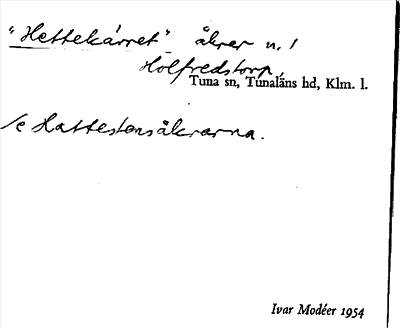 "Hettekärret" åker n. 1
Holfredstorp,
Tuna sn, Tunaläns hd, Klm. l.
se Hattestensåkrarna.
Ivar Modéer 1954